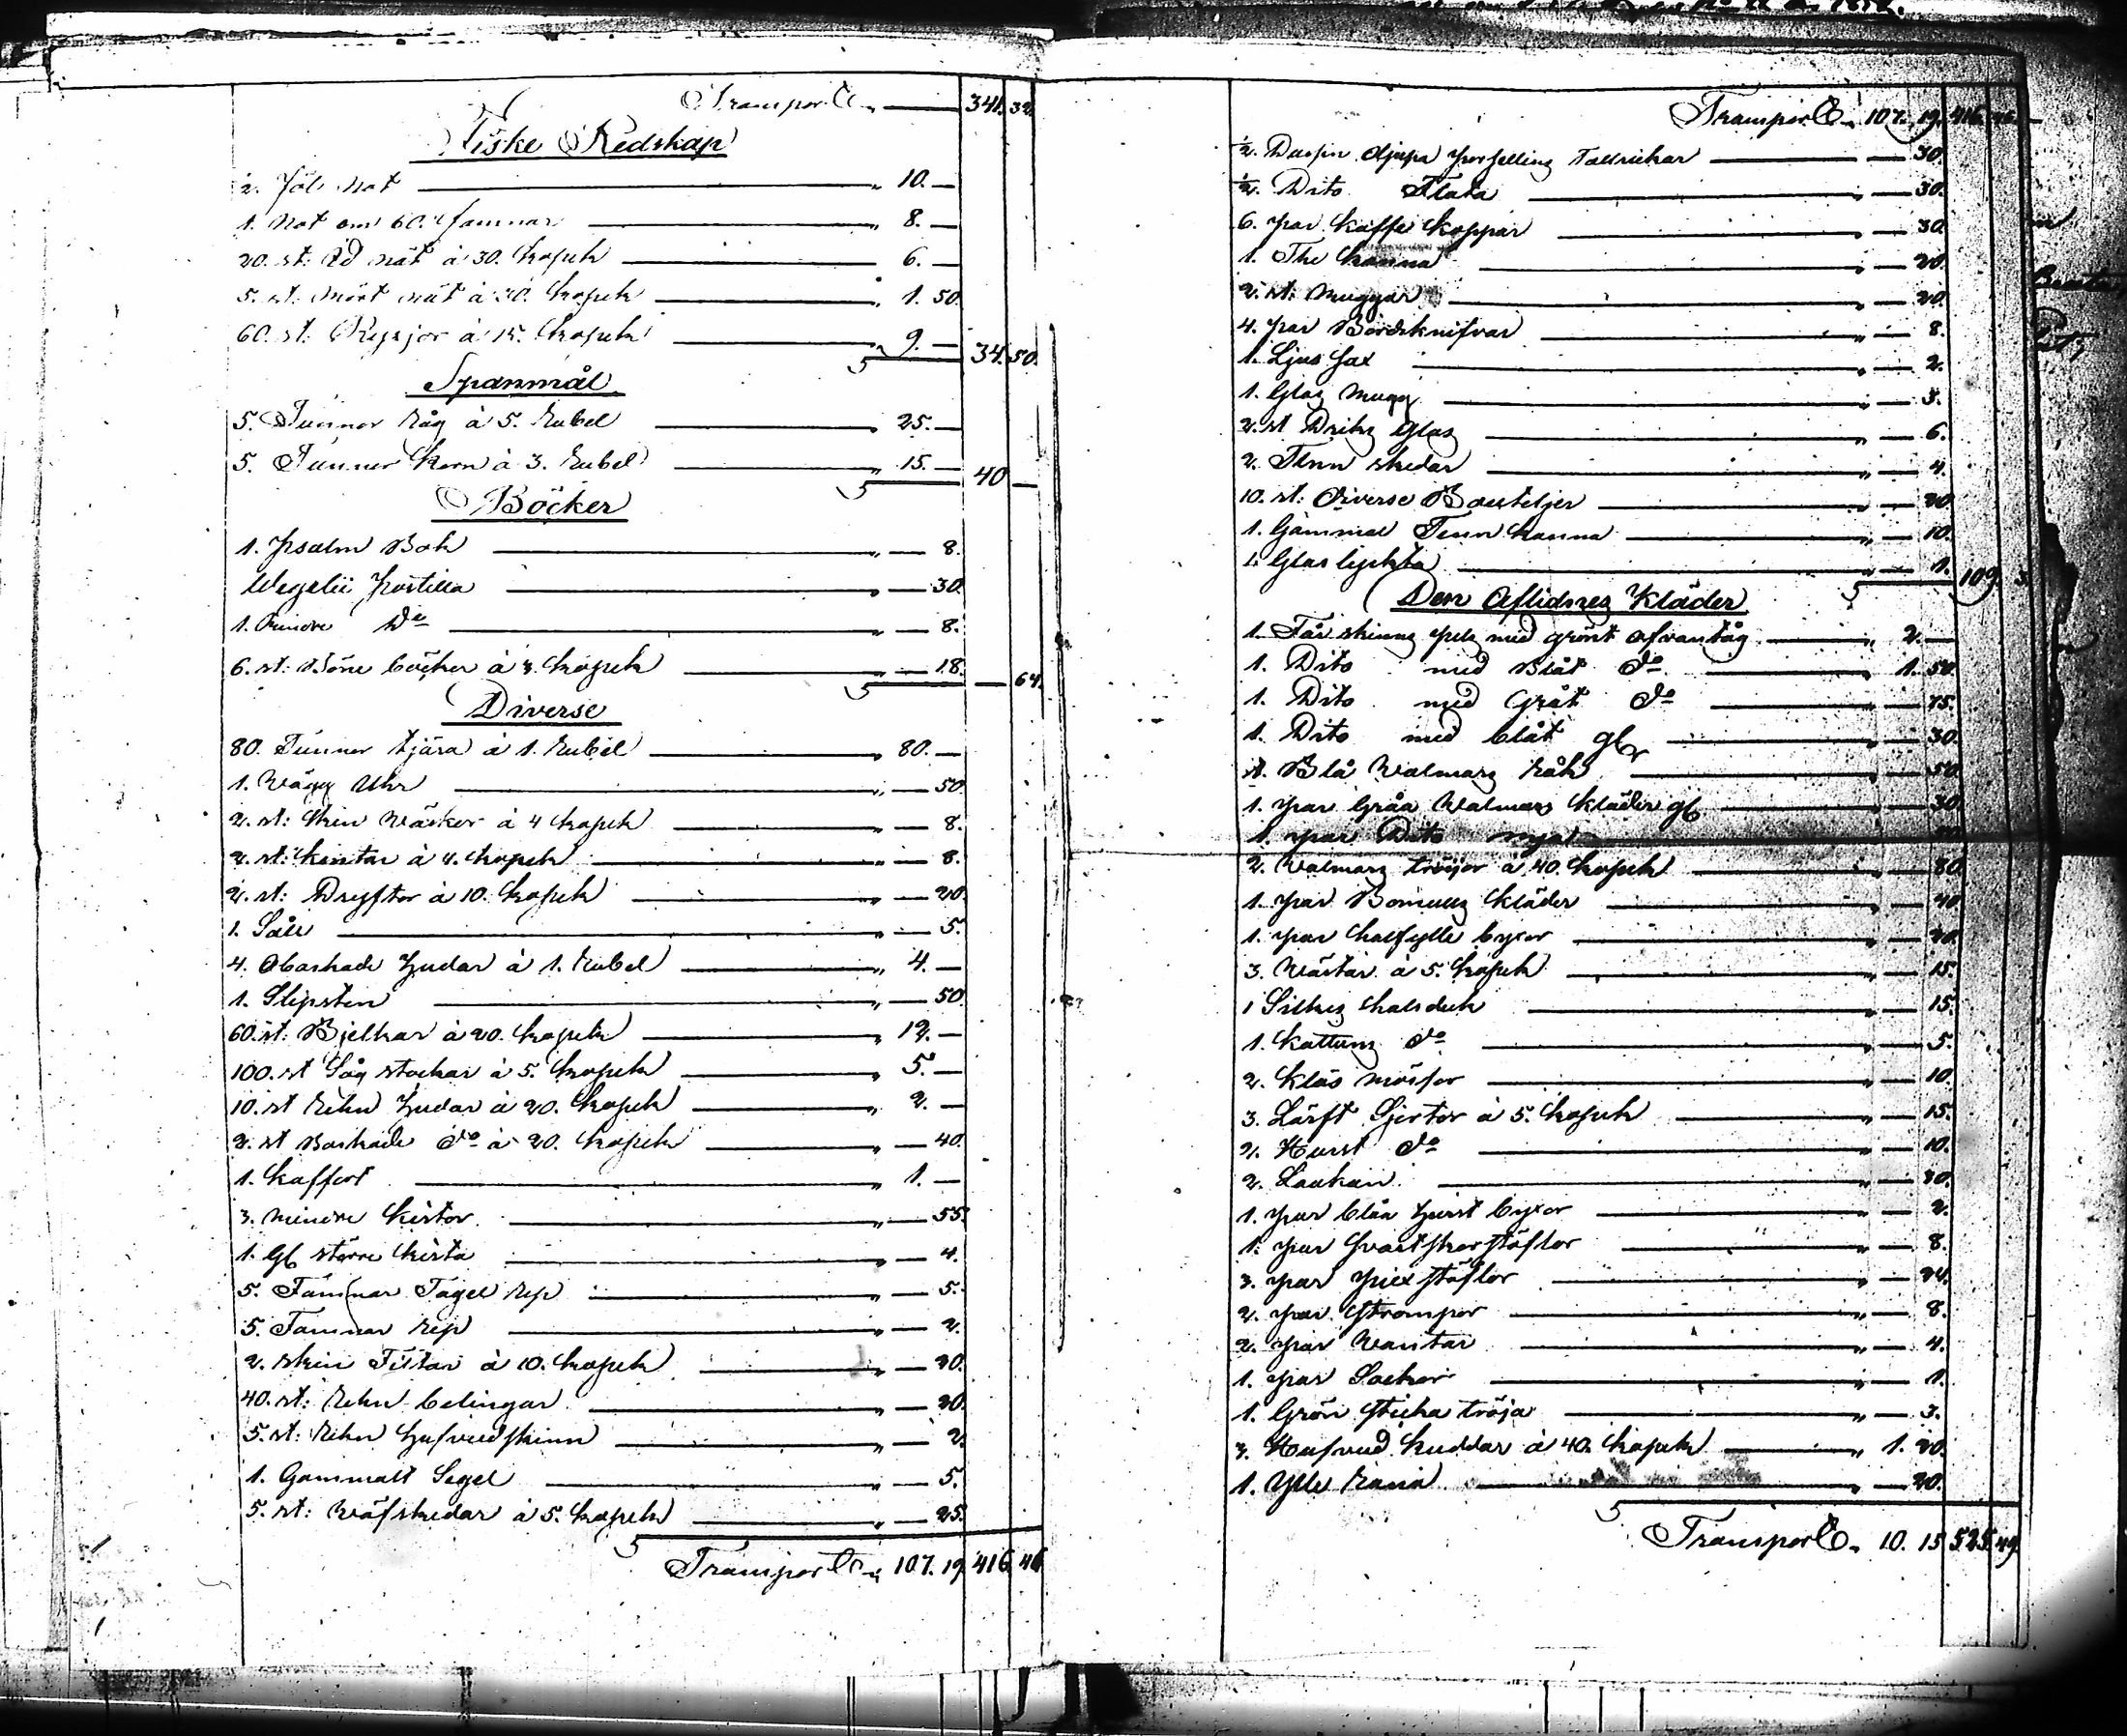 Transport „ — 341. 32.
Fiske Redskap
2. not — „ 10. —
1. Not om 60. famnar — „ 8. —
20. st: Id nät à 30. kopek — „ 6. —
5. st: Mört nät à 30. kopek — „ 1. 50.
60. st: Ryssjor à 15. kopek — „ 9. — 34. 50.
Spanmål
5. Tunnor Råg à 5. Rubel — „ 25. —
5. Tunnor Korn à 3. Rubel — „ 15. — 40 —
Böcker
1. Psalm Bok — „ — 8.
Wegelii Postilla — „ — 30.
1. Mindre Do — „ — 8.
6. st: Böne böcker à 3. kopek — „ — 18. — 64.
Diverse
80. Tunnor tjära à 1. Rubel — „ 80. —
1. Vägg Uhr — „ — 50.
2. st: Skin Wäskor à 4 kopek — „ — 8.
2. st: Kontar à 4. kopek — „ — 8.
2. st: Dryftor à 10. kopek — „ — 20.
1. Såll — „ — 5.
4. Obarkade hudar à 1. Rubel — „ 4. —
1. Slipsten — „ — 50.
60. st: Bjelkar à 20. kopek — „ 12. —
100. st Såg stockar à 5. kopek — „ 5. —
10. st Rehn hudar à 20. kopek — „ 2. —
2. st Barkade do à 20. kopek — „ — 40.
1. Koffert — „ 1. —
3. mindre Kistor — „ — 55.
1. Gl större Kista — „ — 4.
5. Famnar Tagel rep — „ — 5.
5. Famnar rep — „ — 2.
2. skin Fällar à 10. kopek — „ — 20.
40. st: Rehn belingar — „ — 20.
5. st: Rehn hufvudskinn — „ — 2.
1. Gammalt Segel — „ — 5.
5. st: Wäfskedar à 5. kopek — „ — 25.
Transport „ 107. 19. 416. 46.
Transport „ 107. 19. 416. 46.
1/2. Dussin djupa porselling Tallrickar — „ — 30.
1/2. Dito Flata — „ — 30.
6. par Kaffe Koppar — „ — 30.
1. The Kanna — „ — 20.
2. st: Muggar — „ — 20.
4. par Bordsknifvar — „ — 8.
1. Ljus sax — „ — 2.
1. Glas Mugg — „ — 3.
2. st Driks Glas — „ — 6.
2. Tenn skedar — „ — 4.
10. st: diverse Bouteljer — „ — 20.
1. Gammal Tenn Kanna — „ — 10.
1. Glas lyckta — „ — 1. 109. 3.
Den Aflidnes Kläder
1. Fårskinns Pels med grönt ofvantåg — „ 2. —
1. Dito med Blåt do — „ 1. 50.
1. Dito med Gråt do — „ — 75.
1. Dito med blåt gl — „ — 30.
1. Blå Walmars Råk — „ — 50.
1. par Gråa Walmars Kläder gl — „ — 30.
1. par Dito nya —
2. Walmars tröjor à 40. kopek — „ — 80.
1. par Bomulls Kläder — „ — 40.
1. par halfylle byxor — „ — 20.
3. Wästar à 5. kopek — „ — 15.
1 Silkes halsduk — „ — 15.
1. Kattuns do — „ — 5.
2. Kläs mössor — „ — 10.
3. Lärft Skjortor à 5. kopek — „ — 15.
2. Hurst do — „ — 10.
2. Laakan — „ — 30.
1. par blåa hurst byxor — „ — 2.
1. par stöflor — „ — 8.
3. par stöflor — „ — 24.
2. par Strumpor — „ — 8.
2. par Wantar — „ — 4.
1. par Sockor — „ — 1.
1. Grön sticka tröja — „ — 3.
3. Hufvud Kuddar à 40. kopek — „ 1. 20.
1. Ylle Rana — „ — 20.
Transport „ 10. 15 525 49.